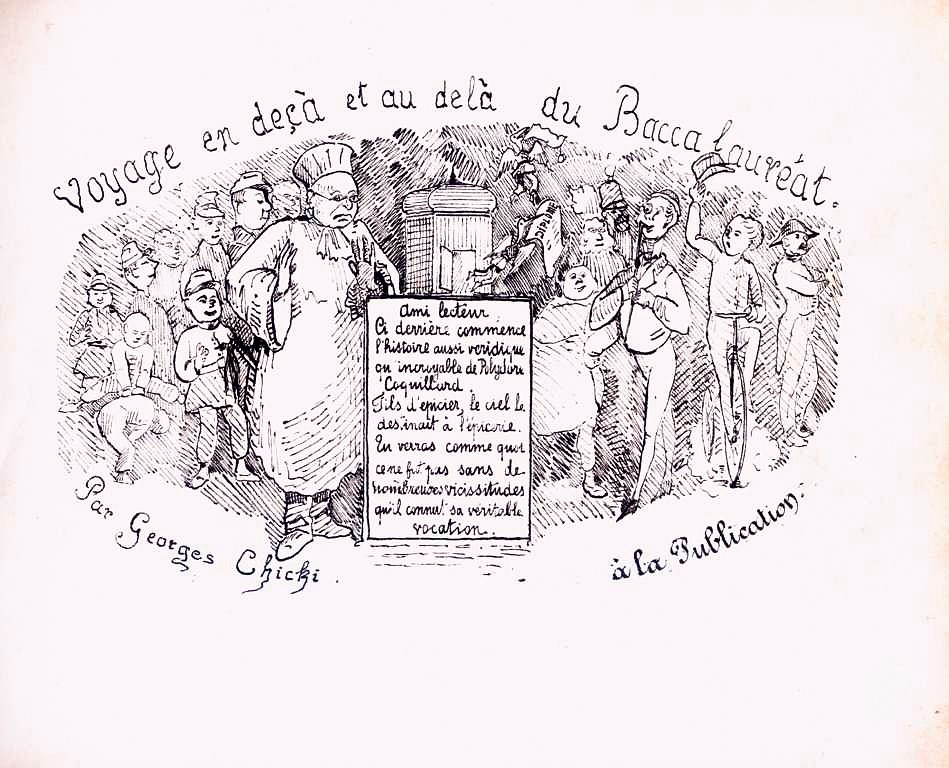 Voyage en deçà et au delà du Baccalauréat.
Ami lecteur
Ci derrière commence
l'histoire aussi veridique
qu incroyable de Polydore
Coquillard.
Fils d'épicier, le ciel le
destinait à l'épicerie.
Tu verras comme quoi
ce ne fut pas sans de
nombreuses vicissitudes
qu'il connut sa veritable
vocation.
Par Georges Chicki.
à la Publication.